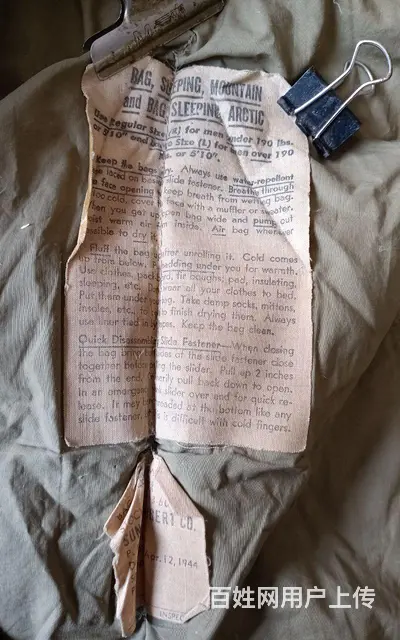 BAG, SLEEPING, MOUNTAIN
and BAG, SLEEPING, ARCTIC
Use Regular Size (R) for men under 190 lbs.
or 5'10" and Size (L) for men over 190
or 5'10".
Keep the bag dry. Always use water-repellent
case on slide fastener. Breathe through
face opening keep breath from wetting bag.
too cold, cover face with a muffler or sweater.
When you get up open bag wide and pump out
moist warm air inside. Air bag whenever
possible to dry
Fluff the bag before unrolling it. Cold comes
up from below. bedding under you for warmth.
Use clothes, fir boughs, pad, insulating,
sleeping, etc. all your clothes to bed.
Put them under Take damp socks, mittens,
insoles, etc., to finish drying them. Always
use liner tied in Keep the bag clean.
Quick Disassembly Slide Fastener—When closing
the bag bring sides of the slide fastener close
together before the slider. Pull up 2 inches
from the end, pull back down to open.
In an emergency slider over end for quick re-
lease. It may be at the bottom like any
slide fastener, is difficult with cold fingers.
BERT CO.
Mar. 12, 1944
百姓网用户上传